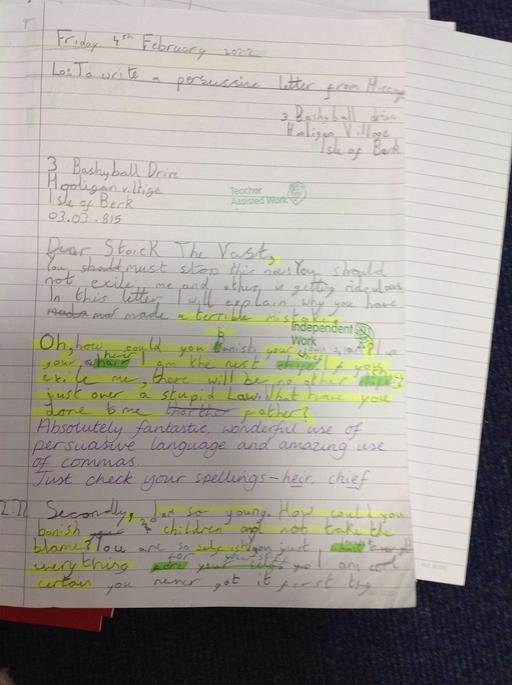 Friday 4th February 2022
Lo: To write a persuasive letter from Hiccup
3 Bashyball drive
Hooligan Village
Isle of Berk
3 Bashyball Drive
Hooligan village
Isle of Berk
03.03.815
Teacher
Assisted Work
Dear Stoick The Vast,
You should must stop this now. You should
not exile me and others, is getting ridiculous
In this letter I will explain why you have
made a terrible mistake.
Independent
Work
Oh, how could you banish your own
your hair heir I am the next chief If you
exile me, there will be no other
just over a stupid Law. What have you
done to me father?
Absolutely fantastic, wonderful use of
persuasive language and amazing use
of commas.
Just check your spellings - heir, chief
Secondly, I am so young. How could you
banish 2 children and not take the
blame? You are so selfish you just
everything for yourself I am
certain you never got it first